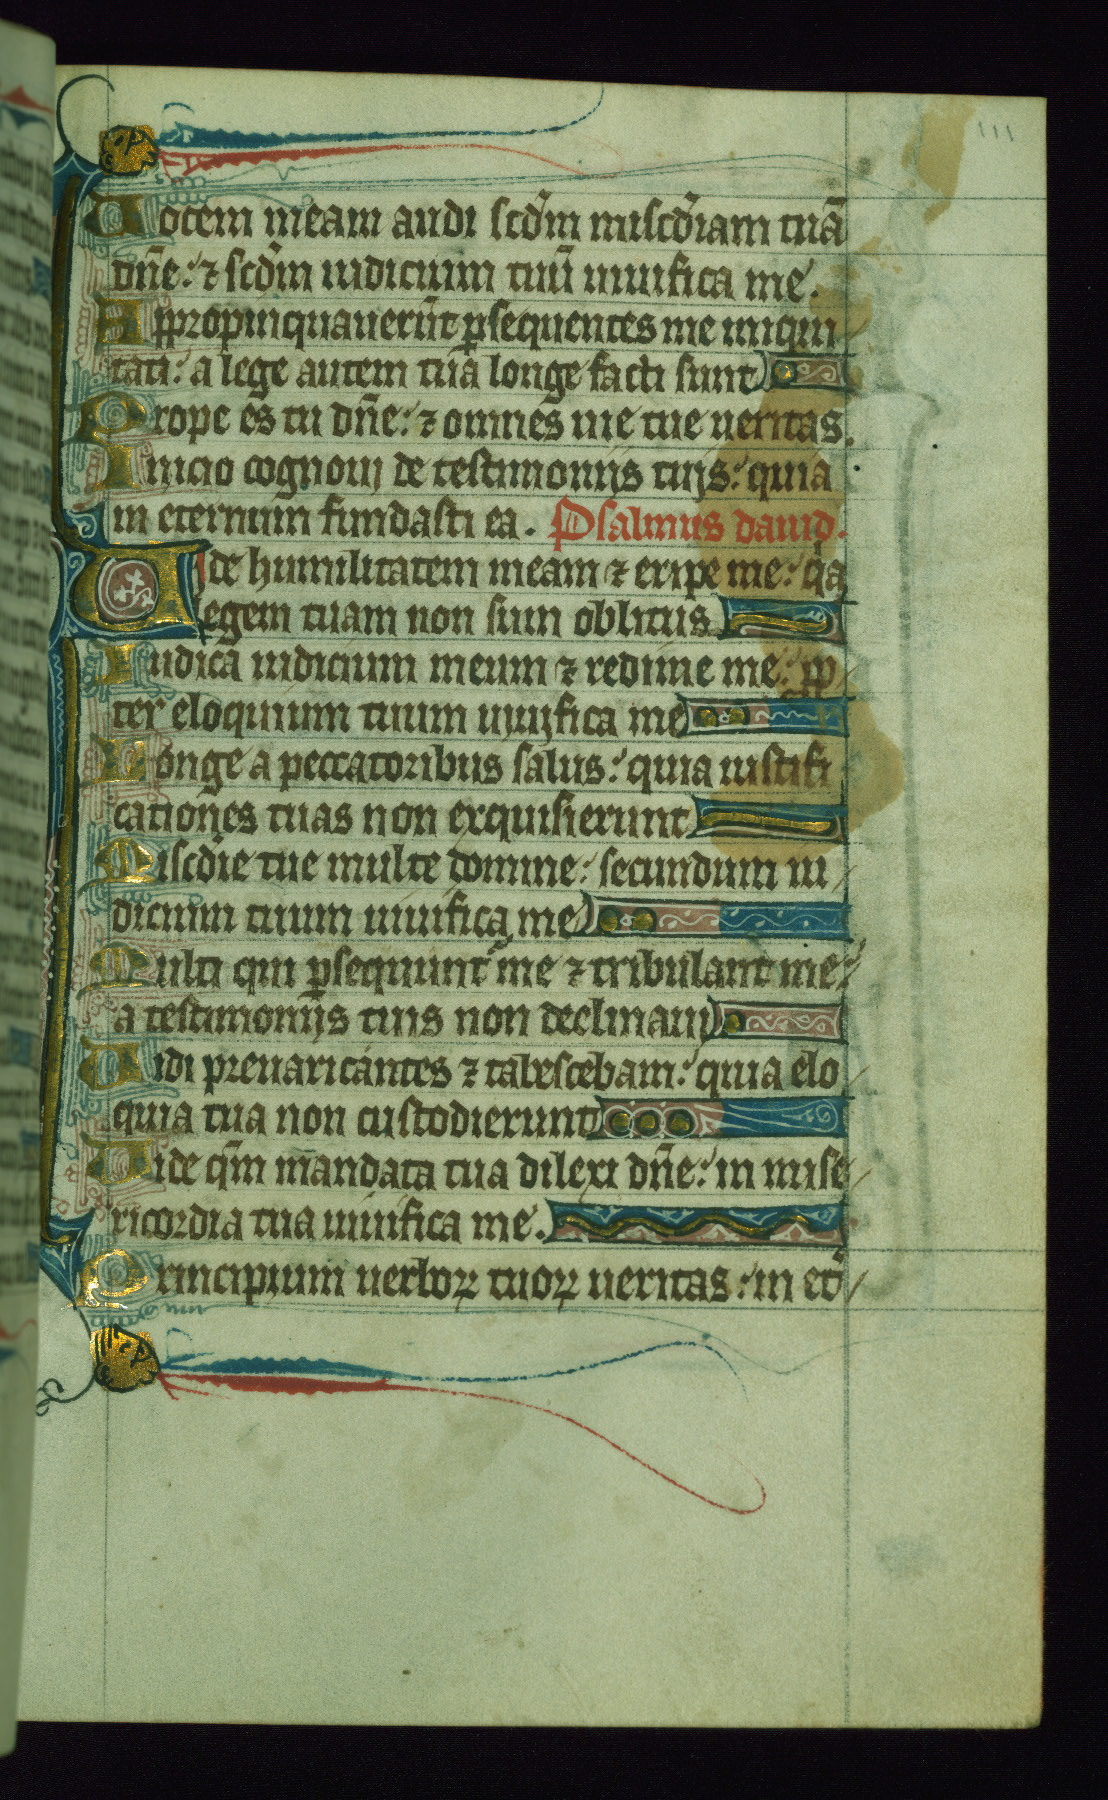 111
Vocem meam audi scd̄m misc̄diam tuā
dn̄e: ⁊ scd̄m iudicium tuū uiuifica me.
Appropinquauerūt ꝑsequentes me iniqui
tati: a lege autem tua longe facti sunt
Prope es tu dn̄e: ⁊ omnes uie tue ueritas.
Inicio cognoui de testimoniis tuis: quia
in eternum fundasti ea. Psalmus dauid.
Vide humilitatem meam ⁊ eripe me: q̄a
legem tuam non sum oblitus
Iudica iudicium meum ⁊ redime me: ꝓp
ter eloquium tuum uiuifica me
Longe a peccatoribus salus: quia iustifi
cationes tuas non exquisierunt
Misc̄die tue multe domine: secundum iu
dicium tuum uiuifica me
Multi qui ꝑsequunt᷑ me ⁊ tribulant me:
a testimoniis tuis non declinaui
Vidi preuaricantes ⁊ tabescebam: quia elo
quia tua non custodierunt
Vide qm̄ mandata tua dilexi dn̄e: in mise
ricordia tua uiuifica me.
Principium uerboꝝ tuoꝝ ueritas: in et᷑